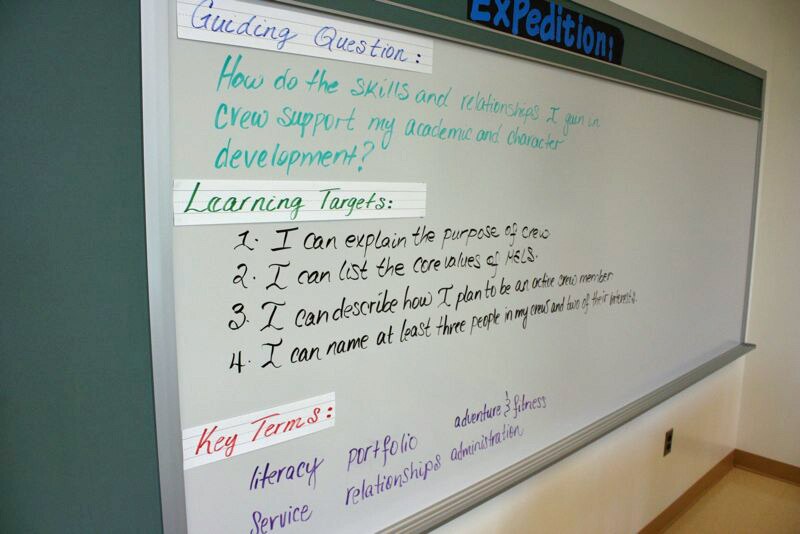 Expedition:
Guiding Question:
How do the skills and relationships I gain in
crew support my academic and character
development?
Learning Targets:
1. I can explain the purpose of crew.
2. I can list the core values of MELS.
3. I can describe how I plan to be an active crew member
4. I can name at least three people in my crew and two of their interests.
Key Terms:
literacy portfolio adventure & fitness
service relationships administration